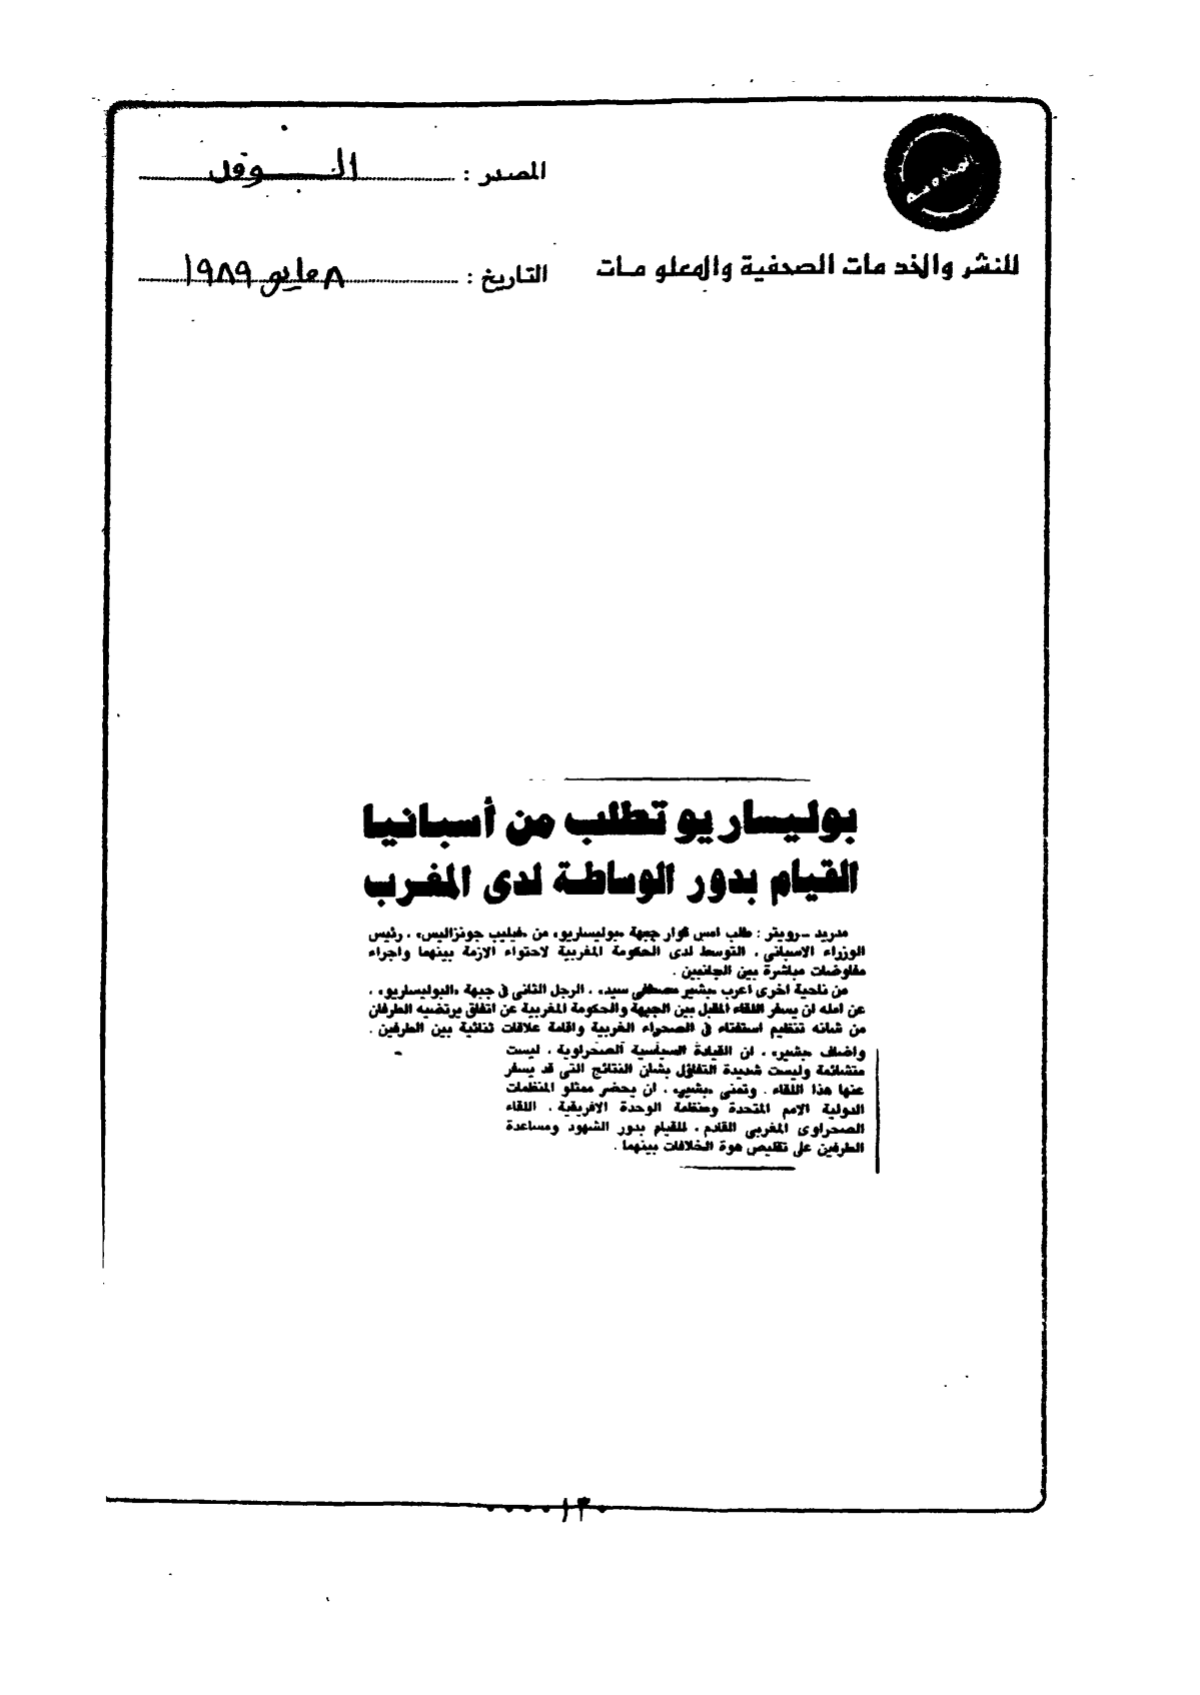 المصدر : الـوفد
للنشر والخدمات الصحفية والمعلومات
التاريخ : ٨ مايو ١٩٨٩
بوليساريو تطلب من أسبانيا
القيام بدور الوساطة لدى المغرب
مدريد ــ رويتر : طلب امس ثوار جبهة «بوليساريو» من «فيليب جونزاليس» ، رئيس
الوزراء الاسبانى ، التوسط لدى الحكومة المغربية لاحتواء الازمة بينهما واجراء
مفاوضات مباشرة بين الجانبين .
من ناحية اخرى اعرب «بشير مصطفى سيد» ، الرجل الثانى فى جبهة «البوليساريو» ،
عن امله ان يسفر اللقاء المقبل بين الجبهة والحكومة المغربية عن اتفاق يرتضيه الطرفان
من شانه تنظيم استفتاء فى الصحراء الغربية واقامة علاقات ثنائية بين الطرفين .
واضاف «بشير» ، ان القيادة السياسية الصحراوية ، ليست
متشائمة وليست شديدة التفاؤل بشان النتائج التى قد يسفر
عنها هذا اللقاء . وتمنى «بشير» ، ان يحضر ممثلو المنظمات
الدولية الامم المتحدة ومنظمة الوحدة الافريقية ، اللقاء
الصحراوى المغربى القادم ، للقيام بدور الشهود ومساعدة
الطرفين على تقليص هوة الخلافات بينهما .